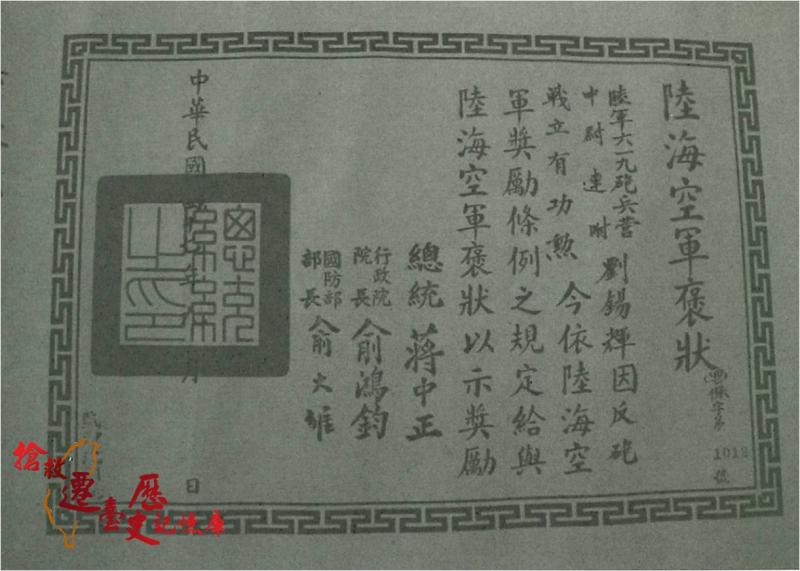 陸海空軍褒狀
字第1012號
陸軍六一九砲兵營
中尉連附
劉錫輝因反砲
戰立有功勲今依陸海空
軍獎勵條例之規定給與
陸海空軍褒狀以示獎勵
總統蔣中正
行政院院長俞鴻鈞
國防部部長俞大維
中華民國 年 月 日
總統之印
搶救遷臺歷史記憶庫